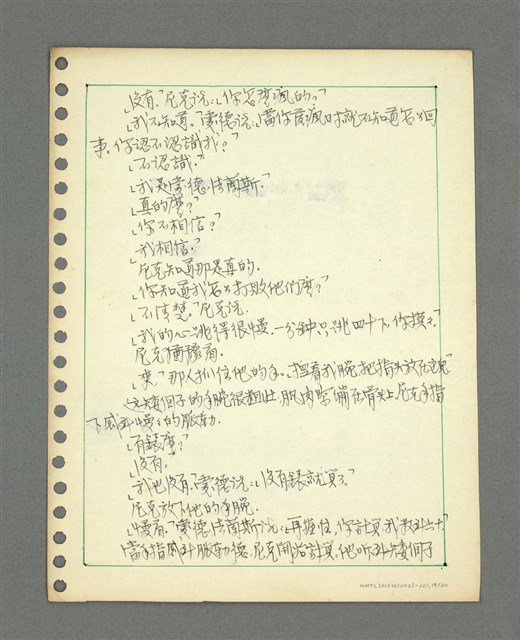 「沒有。」尼克說:「你怎麼瘋的?」
「我不知道。」豪德說:「當你發瘋時就不知道怎麼回
事。你認不認識我?」
「不認識。」
「我是豪德.法蘭斯。」
「真的麼?」
「你不相信?」
「我相信。」
尼克知道那是真的。
「你知道我怎麼打敗他們麼?」
「不清楚。」尼克說.
「我的心跳得很慢.一分鐘只跳四十下.你摸摸。」
尼克猶豫着.
「來。」那人抓住他的手.「握着我腕.把指頭放在這兒。」
這矮個子的手腕很粗壯.肌肉緊繃在骨头上.尼克手指
下感到慢慢的脈動.
「有錶麼?」
「沒有.」
「我也沒有.」豪德說:「沒有錶就算了.」
尼克放下他的手腕.
「慢着.」豪德法蘭斯說:「再握住.你計算.我數到六十.」
當手指感到脈動後.尼克開始計算.他听到矮個子